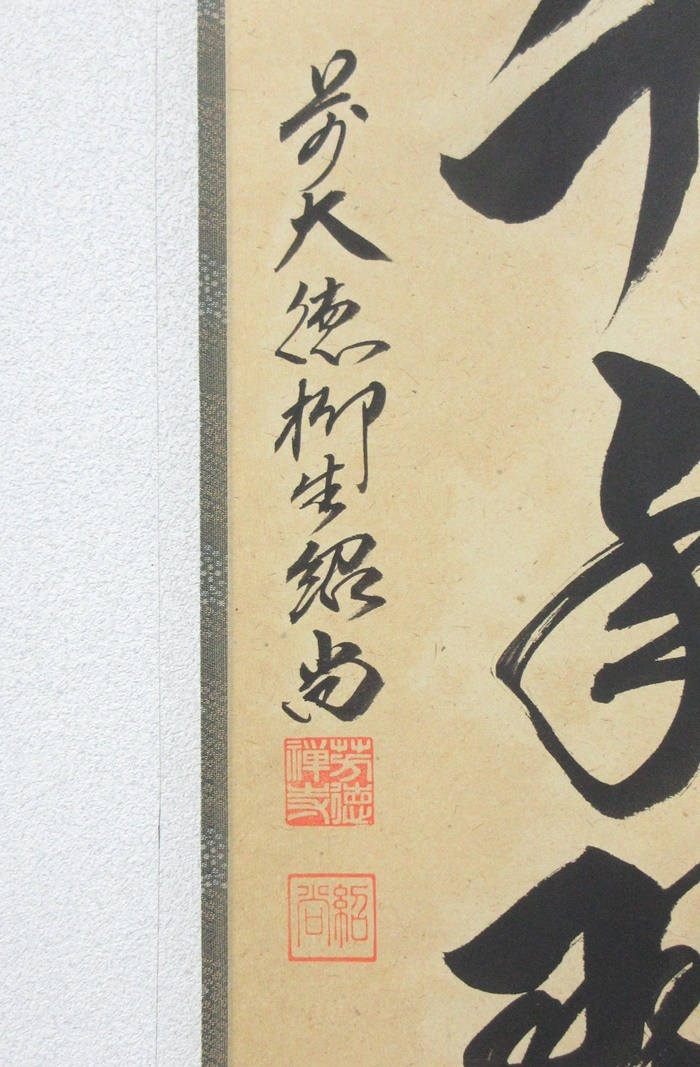 前大徳柳生紹尚
芳徳
禅寺
紹
尚